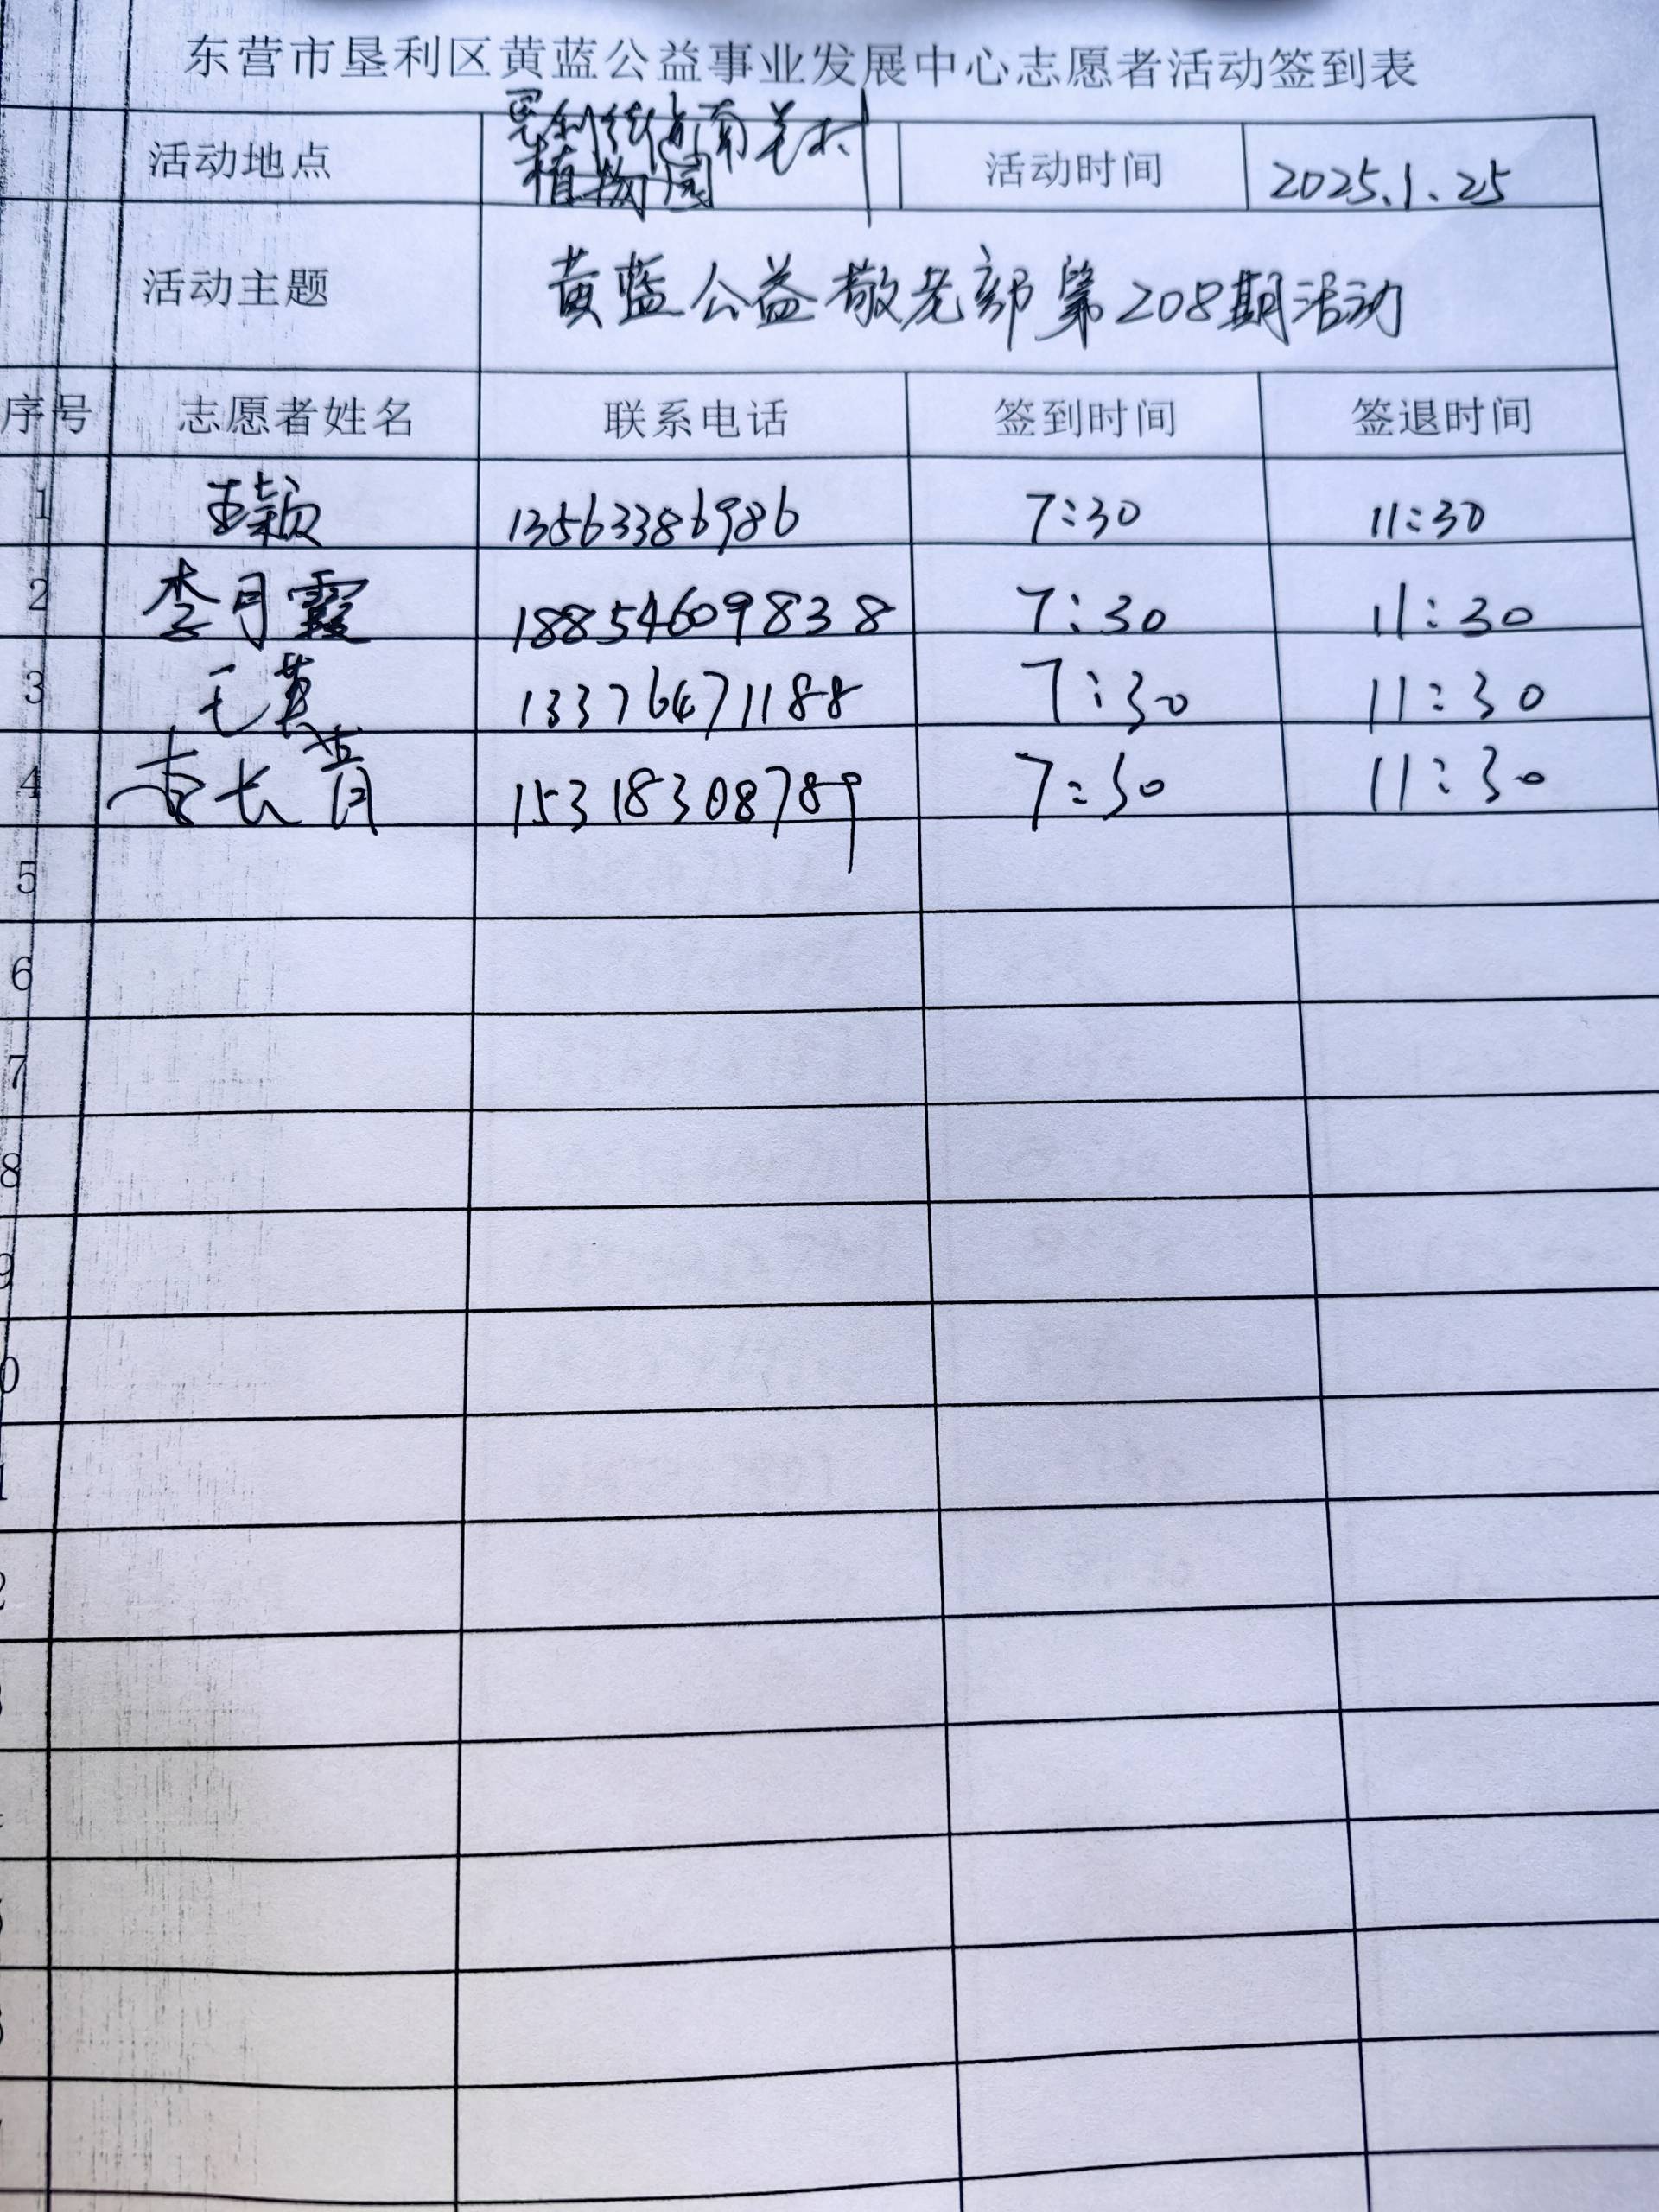 东营市垦利区黄蓝公益事业发展中心志愿者活动签到表
活动地点 垦利街道南羊村 活动时间 2025.1.25
植物园
活动主题 黄蓝公益敬老部第208期活动
序号 志愿者姓名 联系电话 签到时间 签退时间
1 王颖 13563386986 7:30 11:30
2 李月霞 18854609838 7:30 11:30
3 王英 13376471188 7:30 11:30
4 长青 15318308789 7:30 11:30
5
6
7
8
9
0
1
2